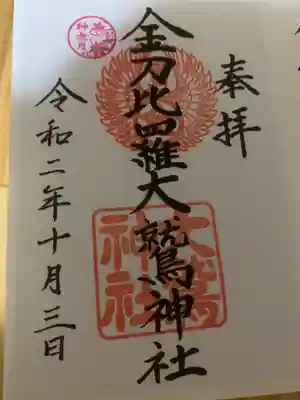 奉拝
金刀比羅大鷲神社
大鷲
神社
令和二年十月三日